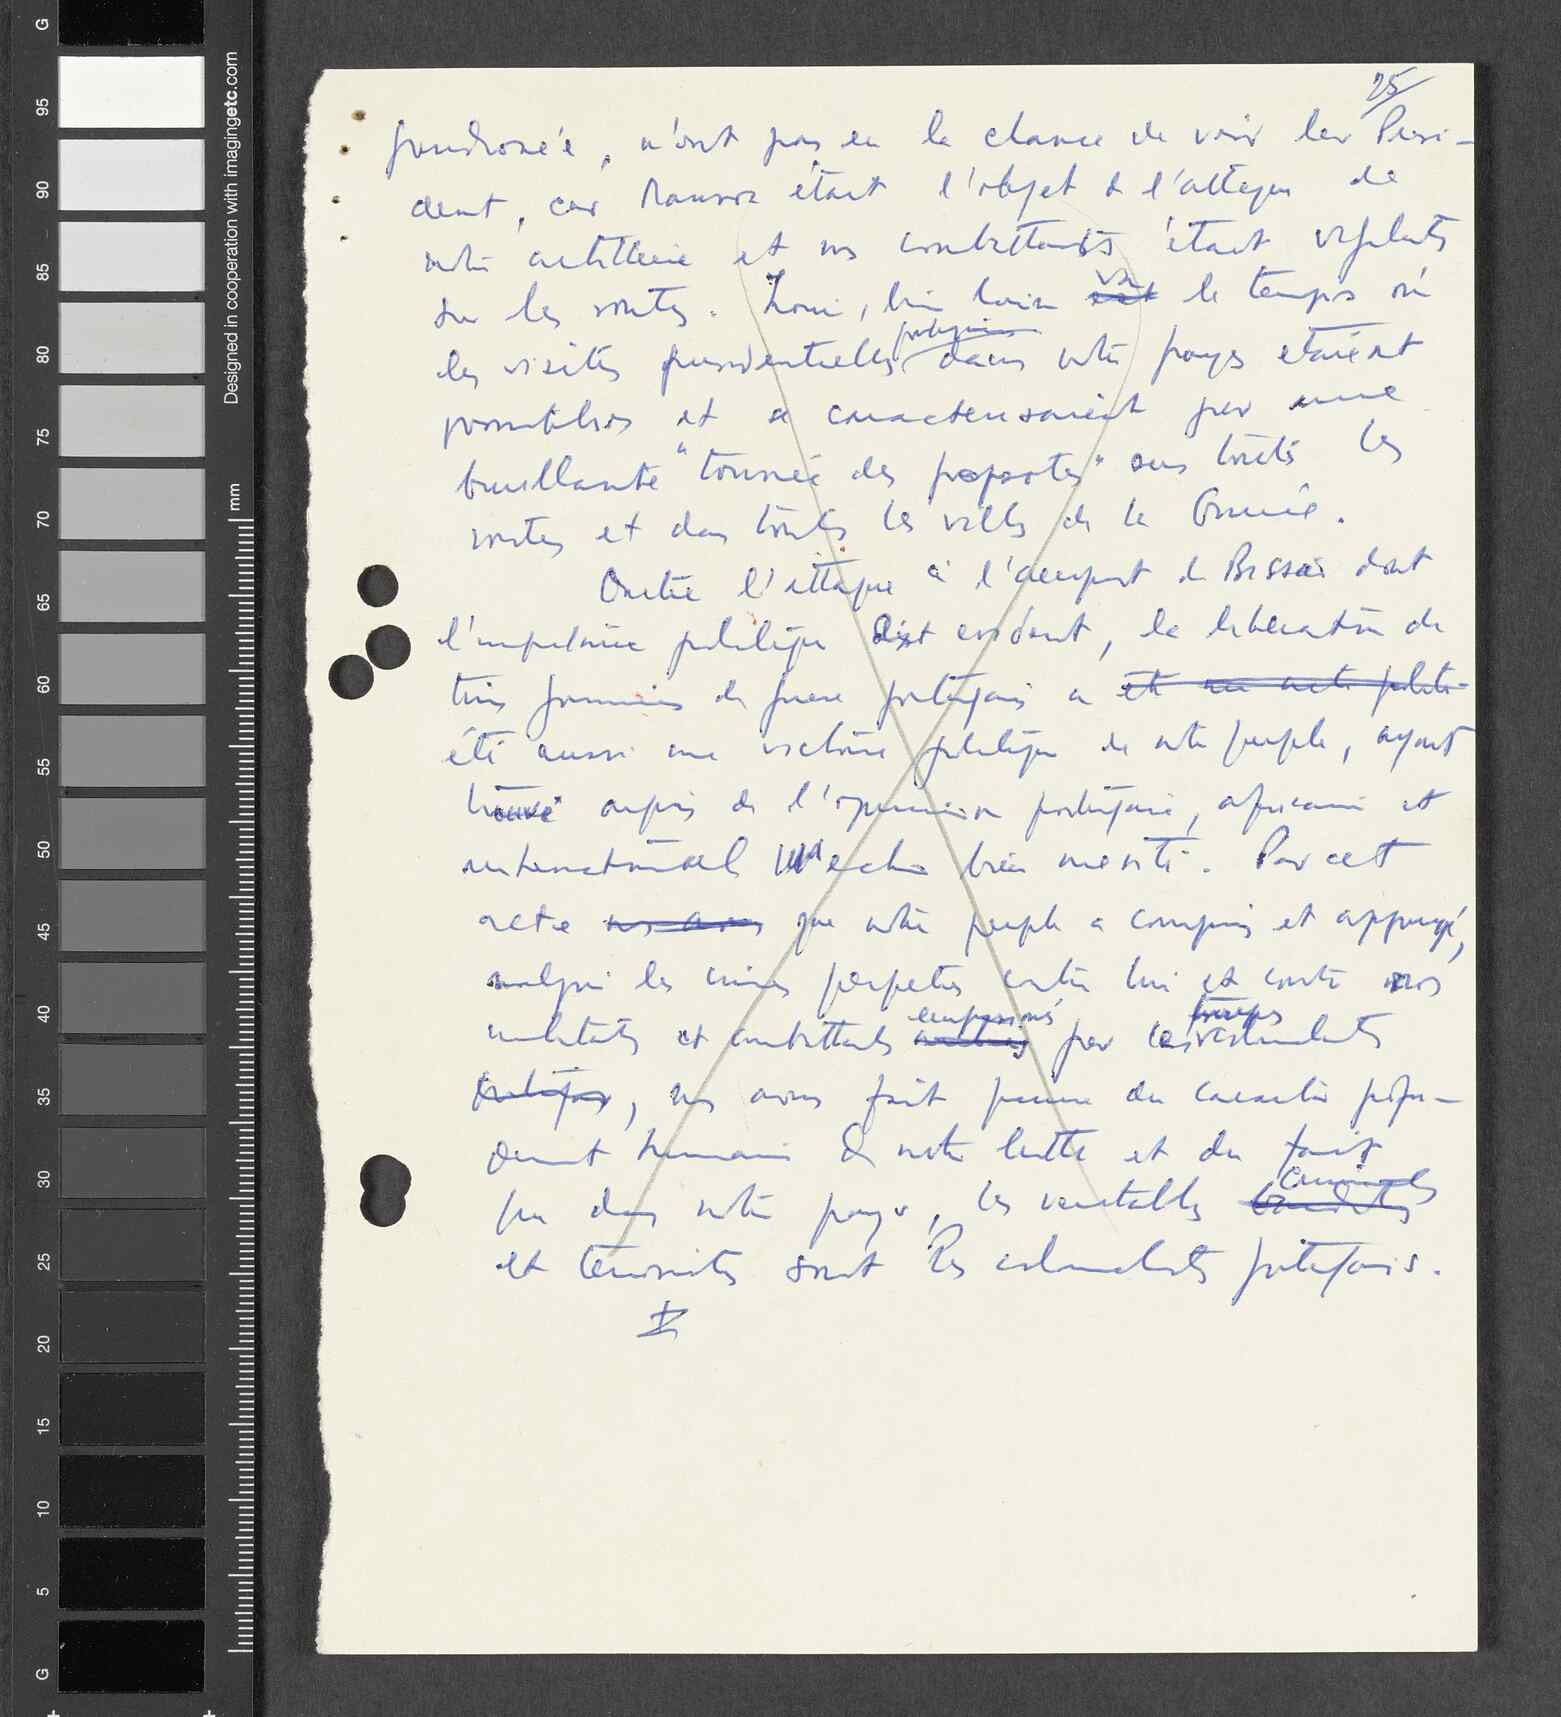 25
goudronée, n'ont pas eu la chance de voir leur Prési-
dent, car Mansoa était l'objet de l'attaque de
notre artillerie et nos combattants étant vigilants
sur les routes. Loin, bien loin va le temps où
les visites présidentielles dans notre pays étaient
possibles et se caractérisaient par une
bruillante "tournée des popotes" sur toutes les
routes et dans toutes les villes de la Guinée.
Outre l'attaque à l'aeroport de Bissao dont
l'importance politique est évident, la liberation de
trois prisonniers de guerre portugais a été un acte politi-
été aussi une victoire politique de notre peuple, ayant
trouvé auprès de l'opinion portugaise, africaine et
internationael un echo bien merité. Par cet
acte nous avons que notre peuple a compris et appuyé,
malgré les crimes perpetrés contre lui et contre nos
militants et combattants emprisonnés par les colonialistes
portugais, nous avons fait preuve du caractère profon-
dement humain de notre lutte et du fait
que dans notre pays, les veritables criminels bandits
et terroristes sont les colonialistes portugais.
V
G
95
90
85
80
75
70
65
60
55
50
45
40
35
30
25
20
15
10
5
G
mm
Designed in cooperation with imagingetc.com